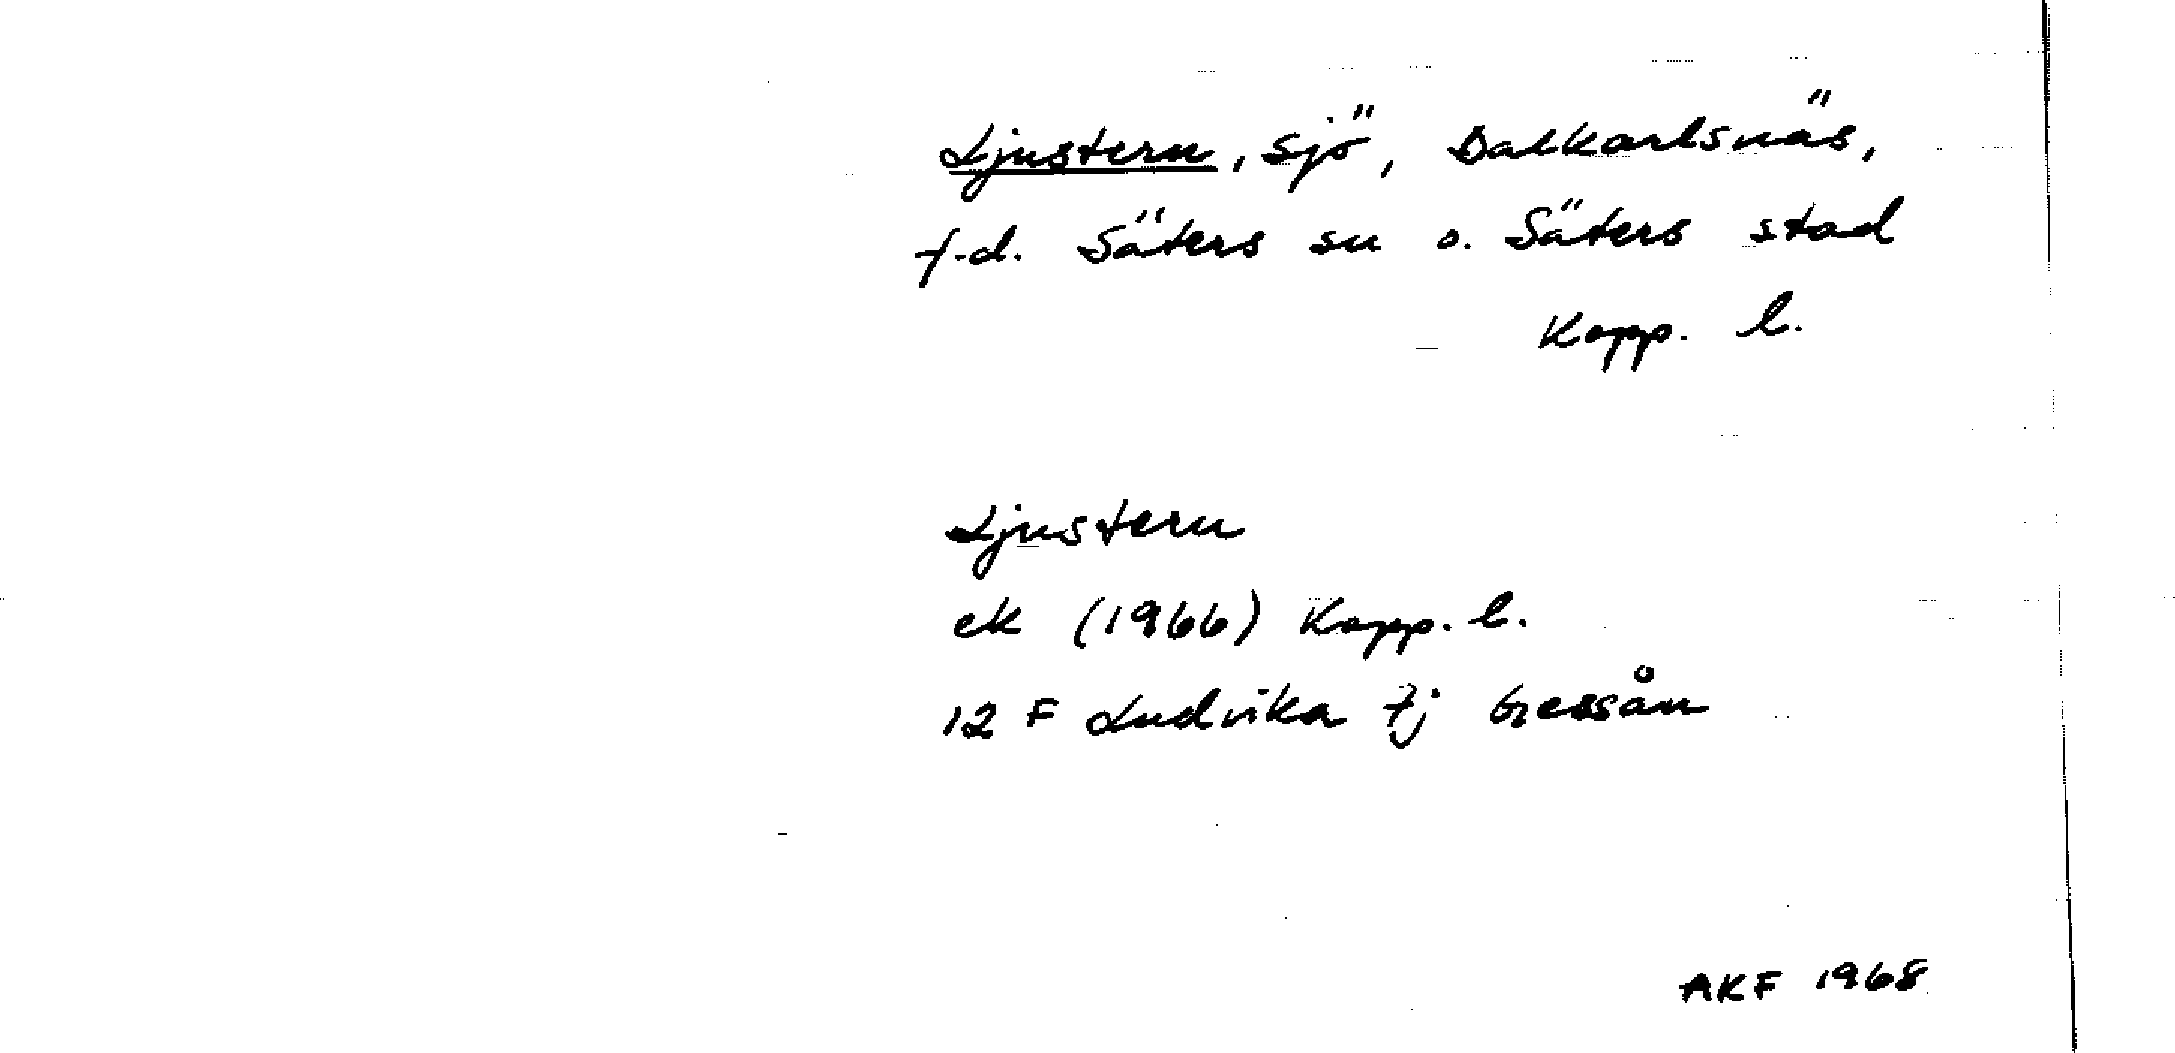 Ljustern, sjö, Dalkarlsnäs,
f.d. Säters sn o. Säters stad
Kopp. l.
Ljustern
ek (1966) Kopp. l.
12 F Ludvika 7j Gessån
AKF 1968